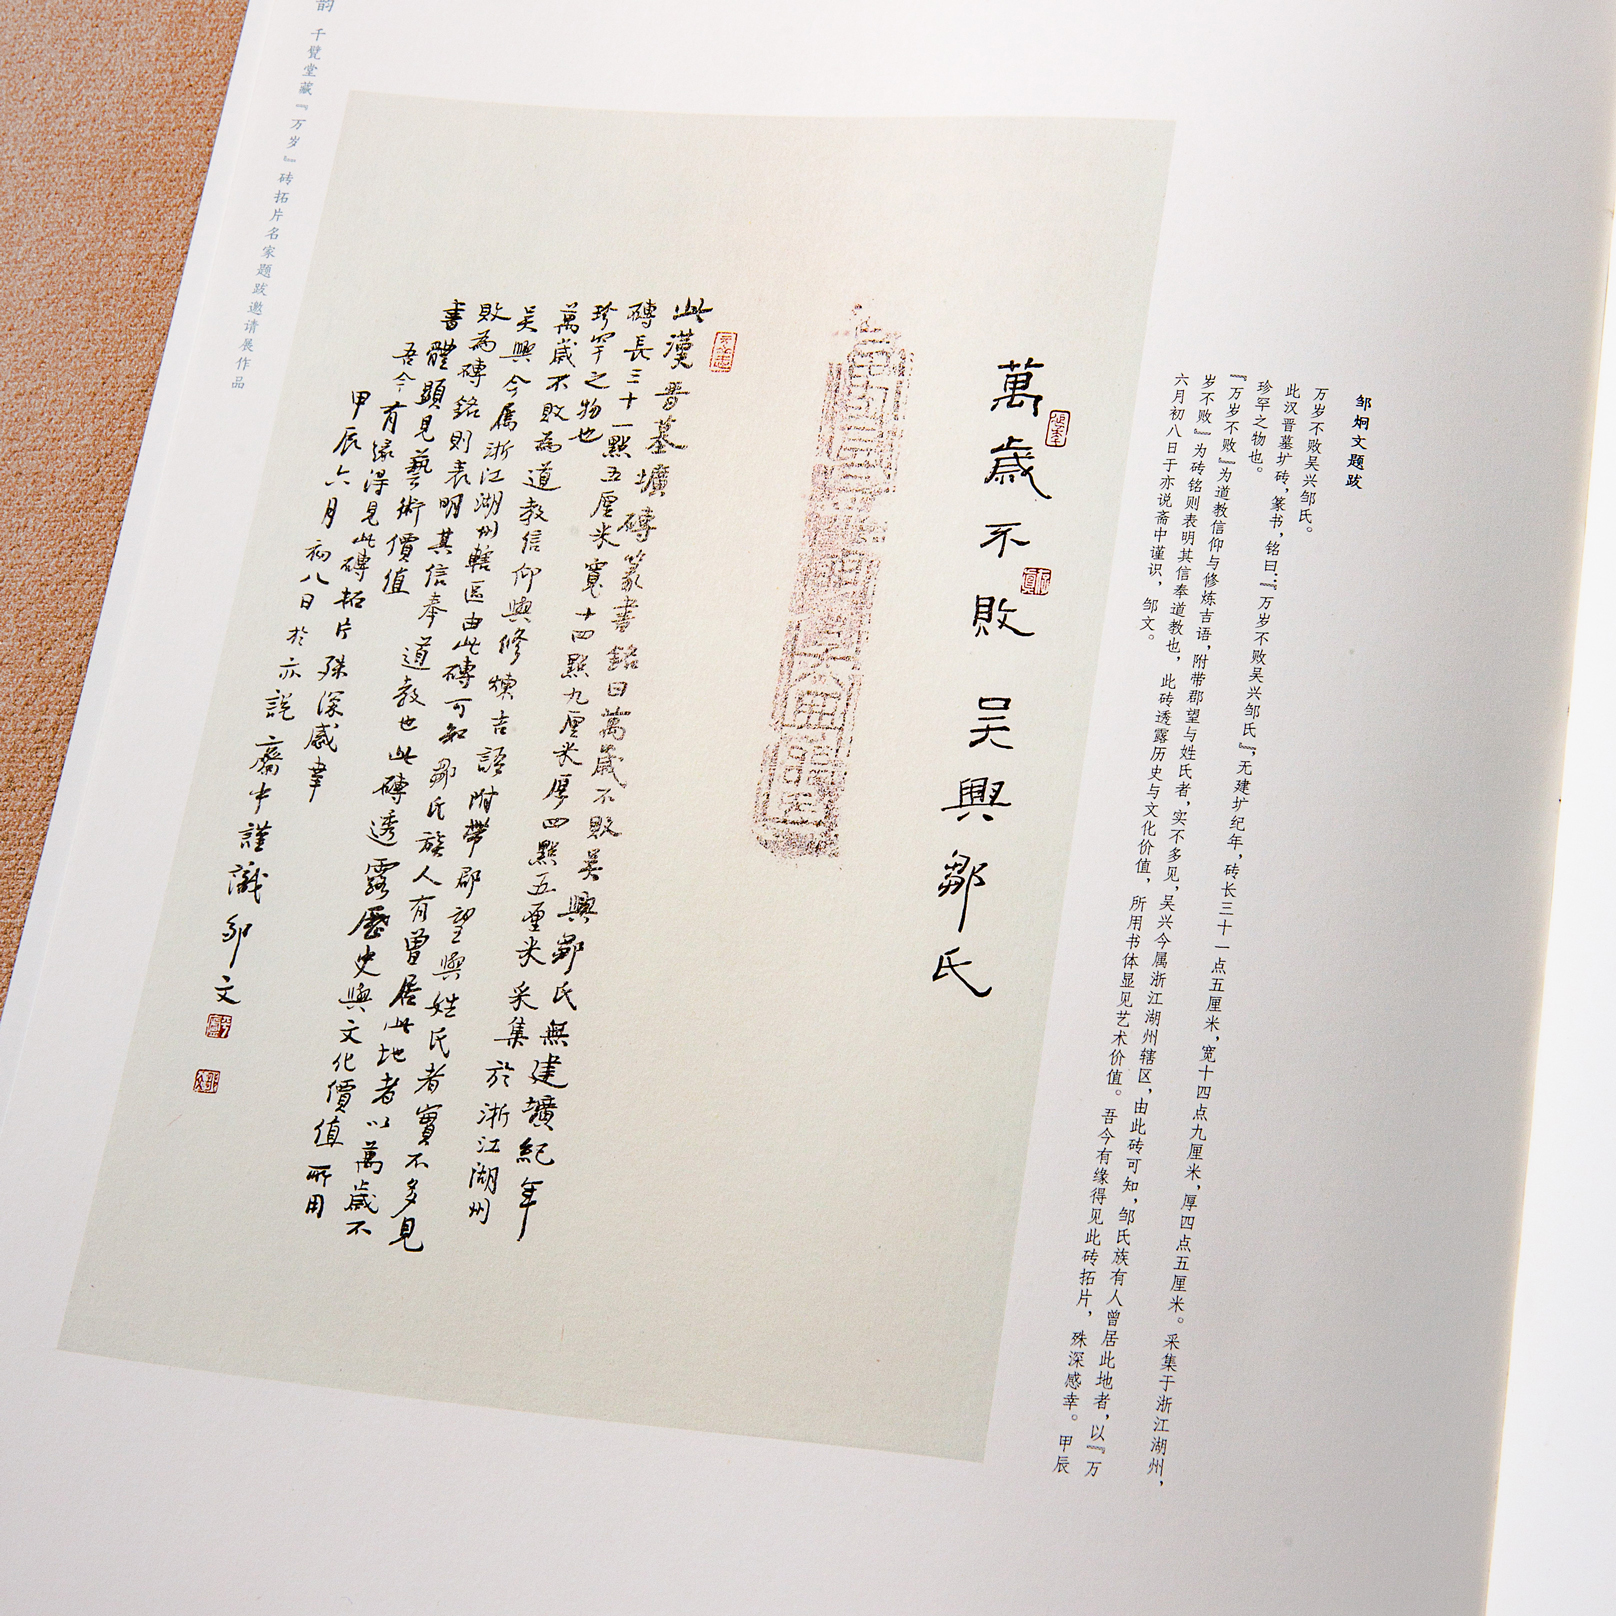 邹炯文题跋
万岁不败吴兴邹氏。
此汉晋墓圹砖，篆书，铭曰：『万岁不败吴兴邹氏』，无建圹纪年，砖长三十一点五厘米，宽十四点九厘米，厚四点五厘米。采集于浙江湖州，
珍罕之物也。
『万岁不败』为道教信仰与修炼吉语，附带郡望与姓氏者，实不多见，吴兴今属浙江湖州辖区，由此砖可知，邹氏族有人曾居此地者，以『万
岁不败』为砖铭则表明其信奉道教也，此砖透露历史与文化价值，所用书体显见艺术价值。吾今有缘得见此砖拓片，殊深感幸。甲辰
六月初八日于亦说斋中谨识，邹文。
萬歲不敗 吴興鄒氏
此漢晋墓壙磚篆書銘曰萬歲不敗吴興鄒氏無建壙紀年
磚長三十一點五厘米寬十四點九厘米厚四點五厘米采集於浙江湖州
珍罕之物也
萬歲不敗為道教信仰與修煉吉語附帶郡望與姓氏者實不多見
吴興今属浙江湖州轄區由此磚可知鄒氏族人有曾居此地者以萬歲不
敗為磚銘則表明其信奉道教也此磚透露歷史與文化價值所用
書體顯見藝術價值
吾今有緣得見此磚拓片殊深感幸
甲辰六月初八日於亦説齋中謹識鄒文
韵 千甓堂藏『万岁』砖拓片名家题跋邀请展作品